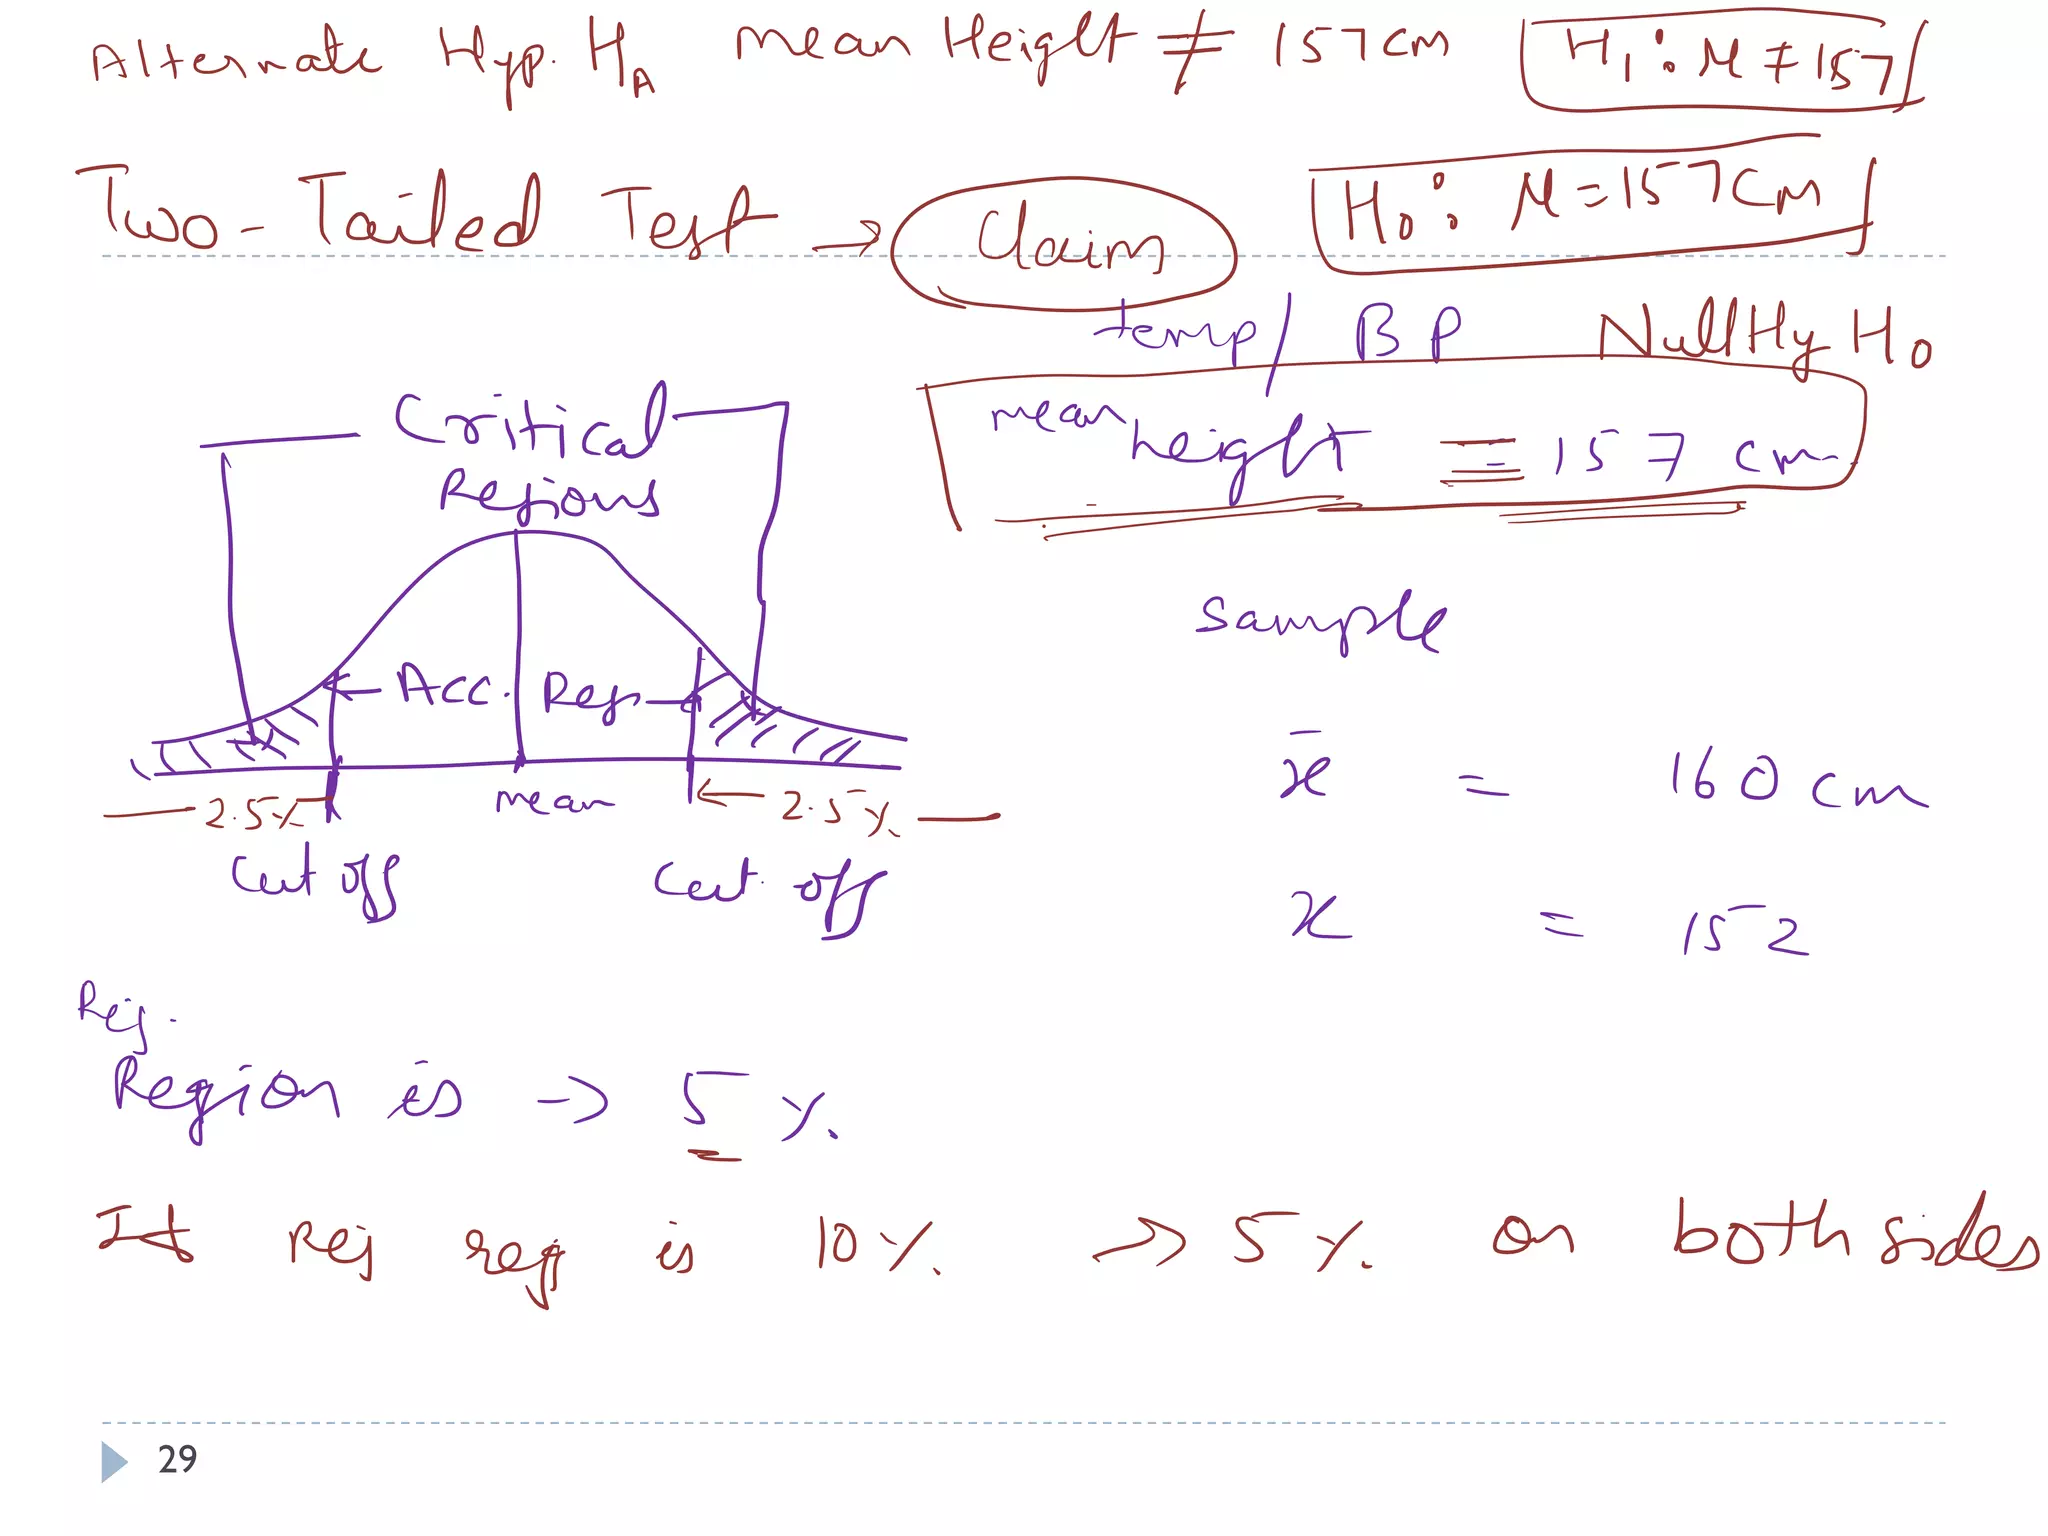 Alternate Hyp. HA mean Height ≠ 157 cm H1: M ≠ 157
Two-Tailed Test → Claim H0: M = 157 cm
temp / BP Null Hy H0
mean height = 157 cm
Critical
Regions
sample
Acc. Reg
x̄ = 160 cm
2.5% mean 2.5%
Cut off Cut off
x = 152
Rej.
Region is → 5 %
If Rej reg is 10 % → 5 % on both sides
29